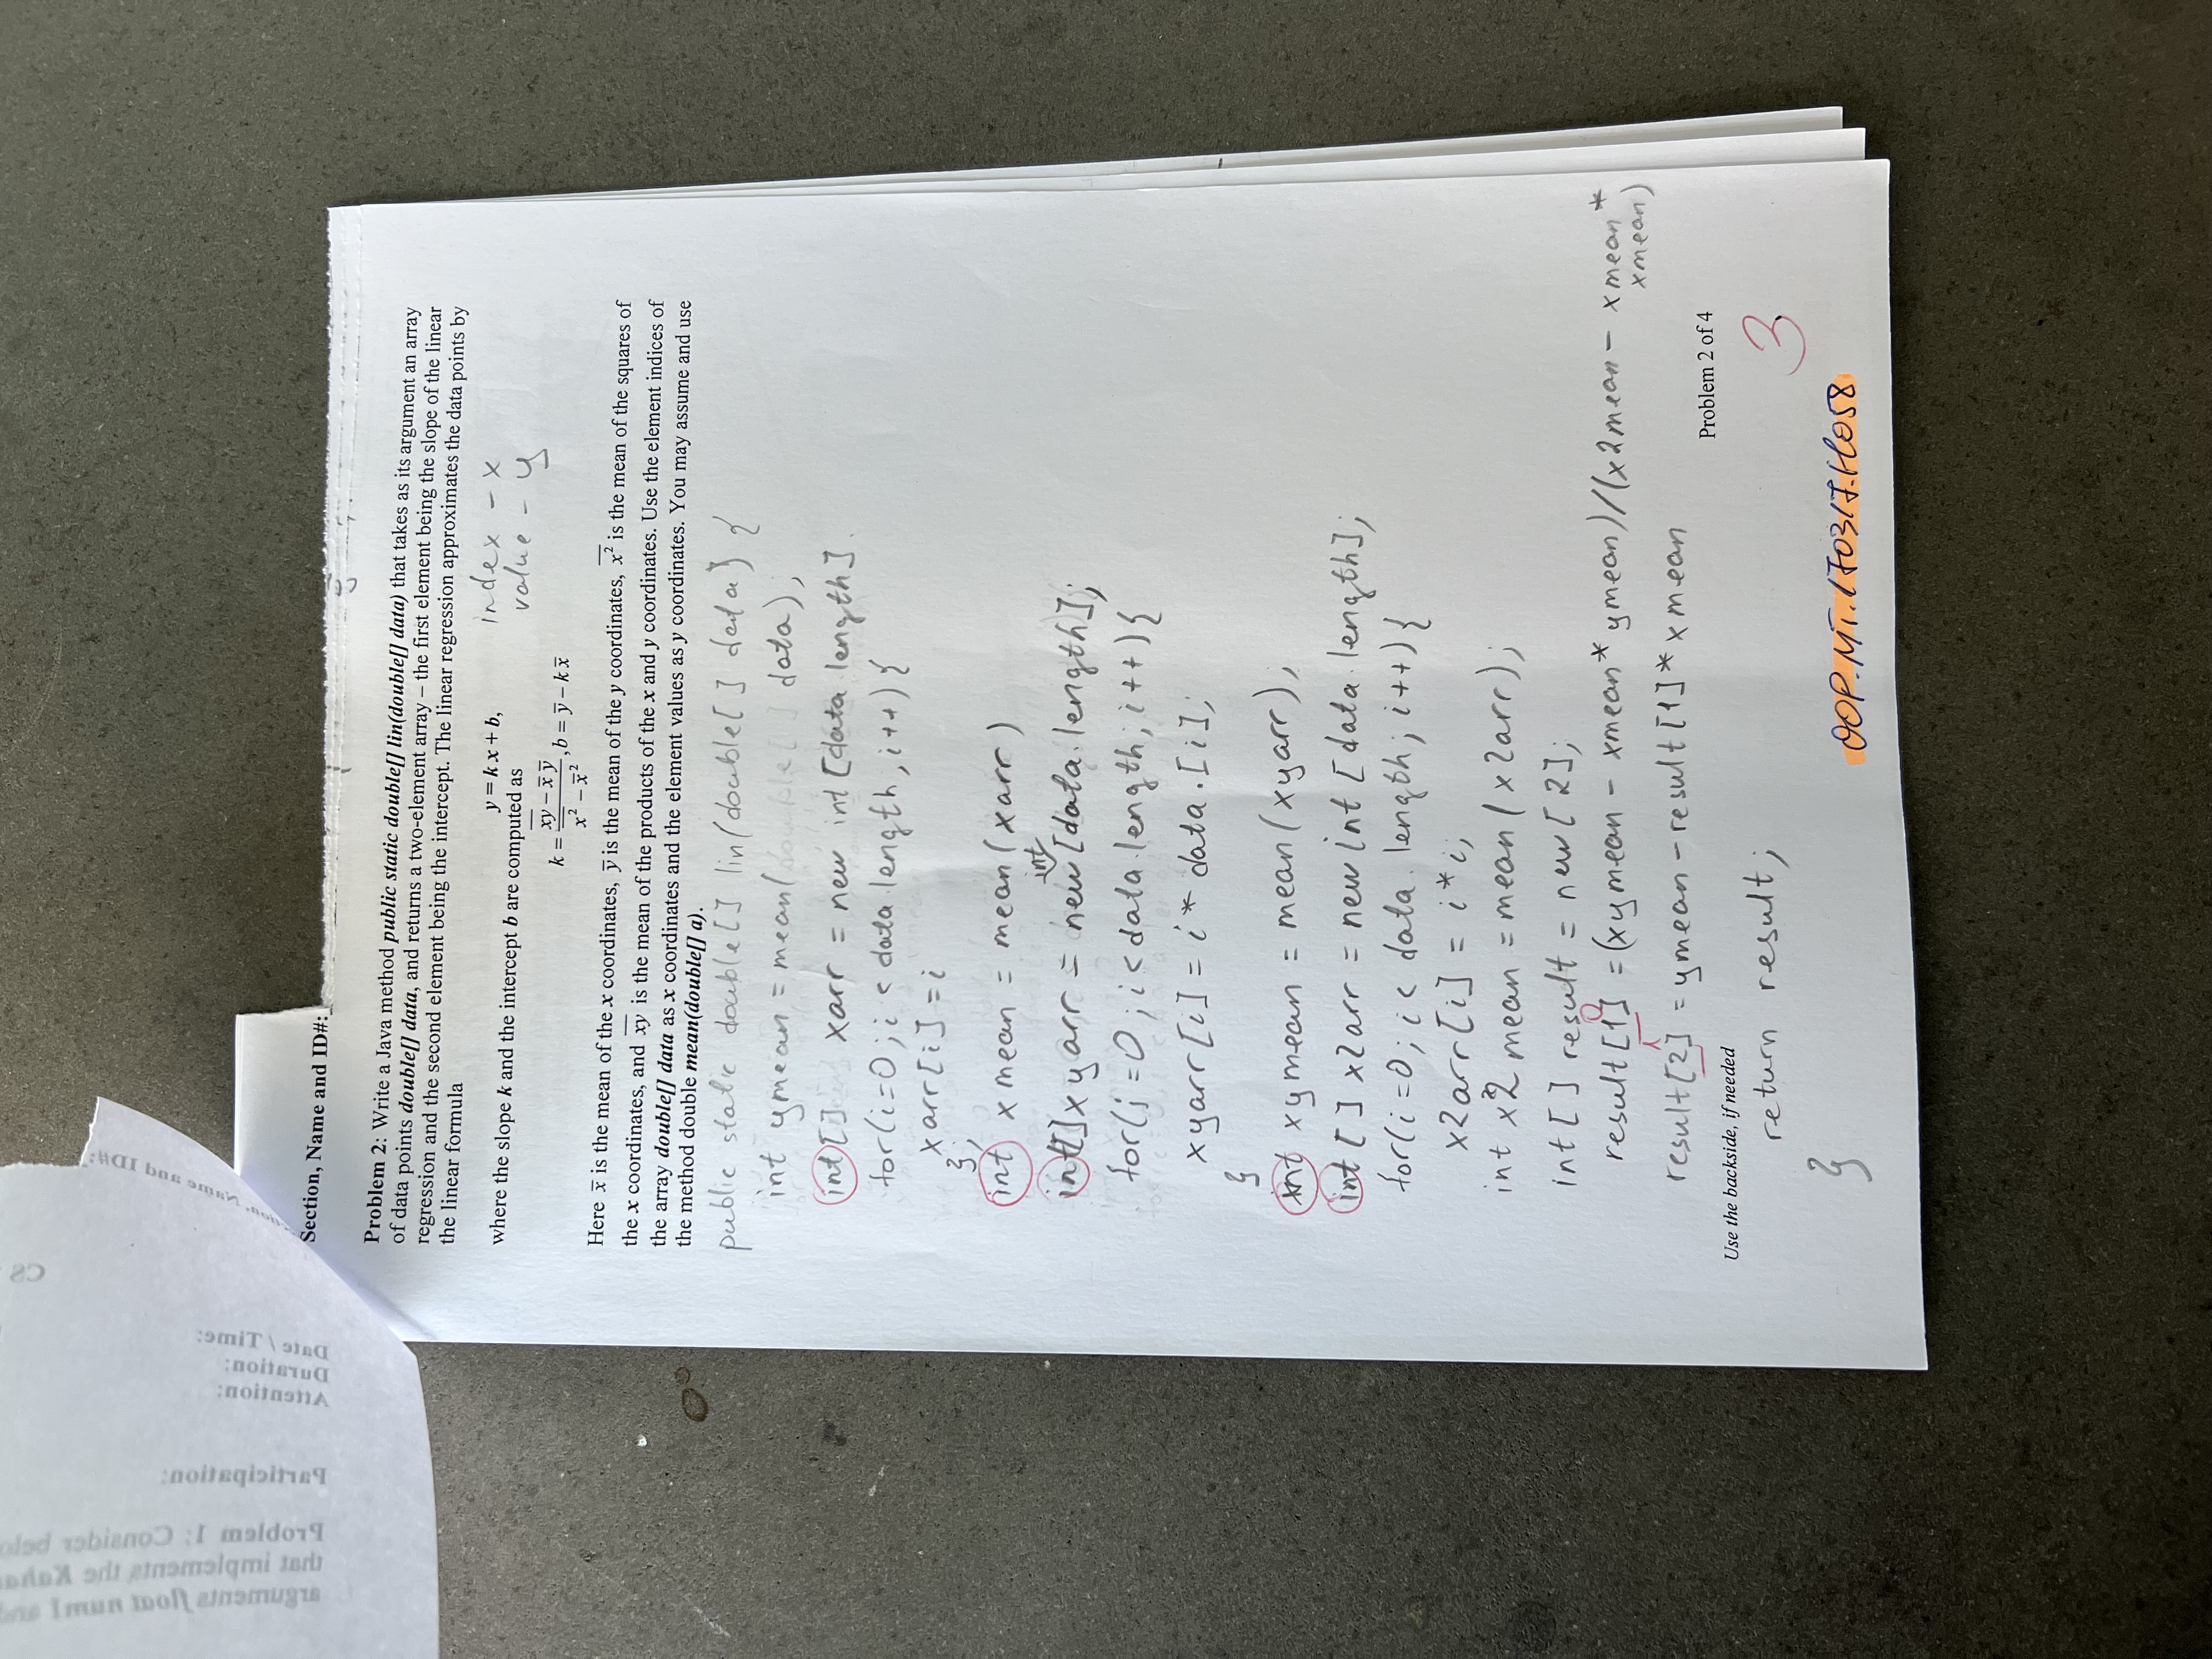 CS
arguments float num1 and
that implements the Kaha
Problem 1: Consider belo
Participation:
Attention:
Duration:
Date / Time:
Name and ID#:
Section, Name and ID#:
Problem 2: Write a Java method public static double[] lin(double[] data) that takes as its argument an array
of data points double[] data, and returns a two-element array – the first element being the slope of the linear
regression and the second element being the intercept. The linear regression approximates the data points by
the linear formula
y = k x + b,
index - x
where the slope k and the intercept b are computed as
value - y
k = (\overline{xy} − x̄ ȳ) / (\overline{x²} − x̄²), b = ȳ − k x̄
Here x̄ is the mean of the x coordinates, ȳ is the mean of the y coordinates, \overline{x²} is the mean of the squares of
the x coordinates, and \overline{xy} is the mean of the products of the x and y coordinates. Use the element indices of
the array double[] data as x coordinates and the element values as y coordinates. You may assume and use
the method double mean(double[] a).
public static double[] lin(double[] data) {
int ymean = mean( data);
int[] xarr = new int [data.length].
for(i=0; i < data.length, i++){
xarr[i] = i
};
int xmean = mean(xarr)
int
int[] xyarr = new [data.length];
for(i=0; i<data.length; i++){
xyarr[i] = i* data.[i];
}
int xymean = mean(xyarr);
int [] x2arr = new int [data.length];
for(i=0; i< data.length; i++){
x2arr[i] = i*i;
int x2mean = mean(x2arr);
int[] result = new[2];
0
result[1] = (xymean - xmean* ymean)/(x2mean - xmean*
xmean)
1
result[2] = ymean - result[1]* xmean
Problem 2 of 4
Use the backside, if needed
return result;
3
}
OOP.MT.170317.H058